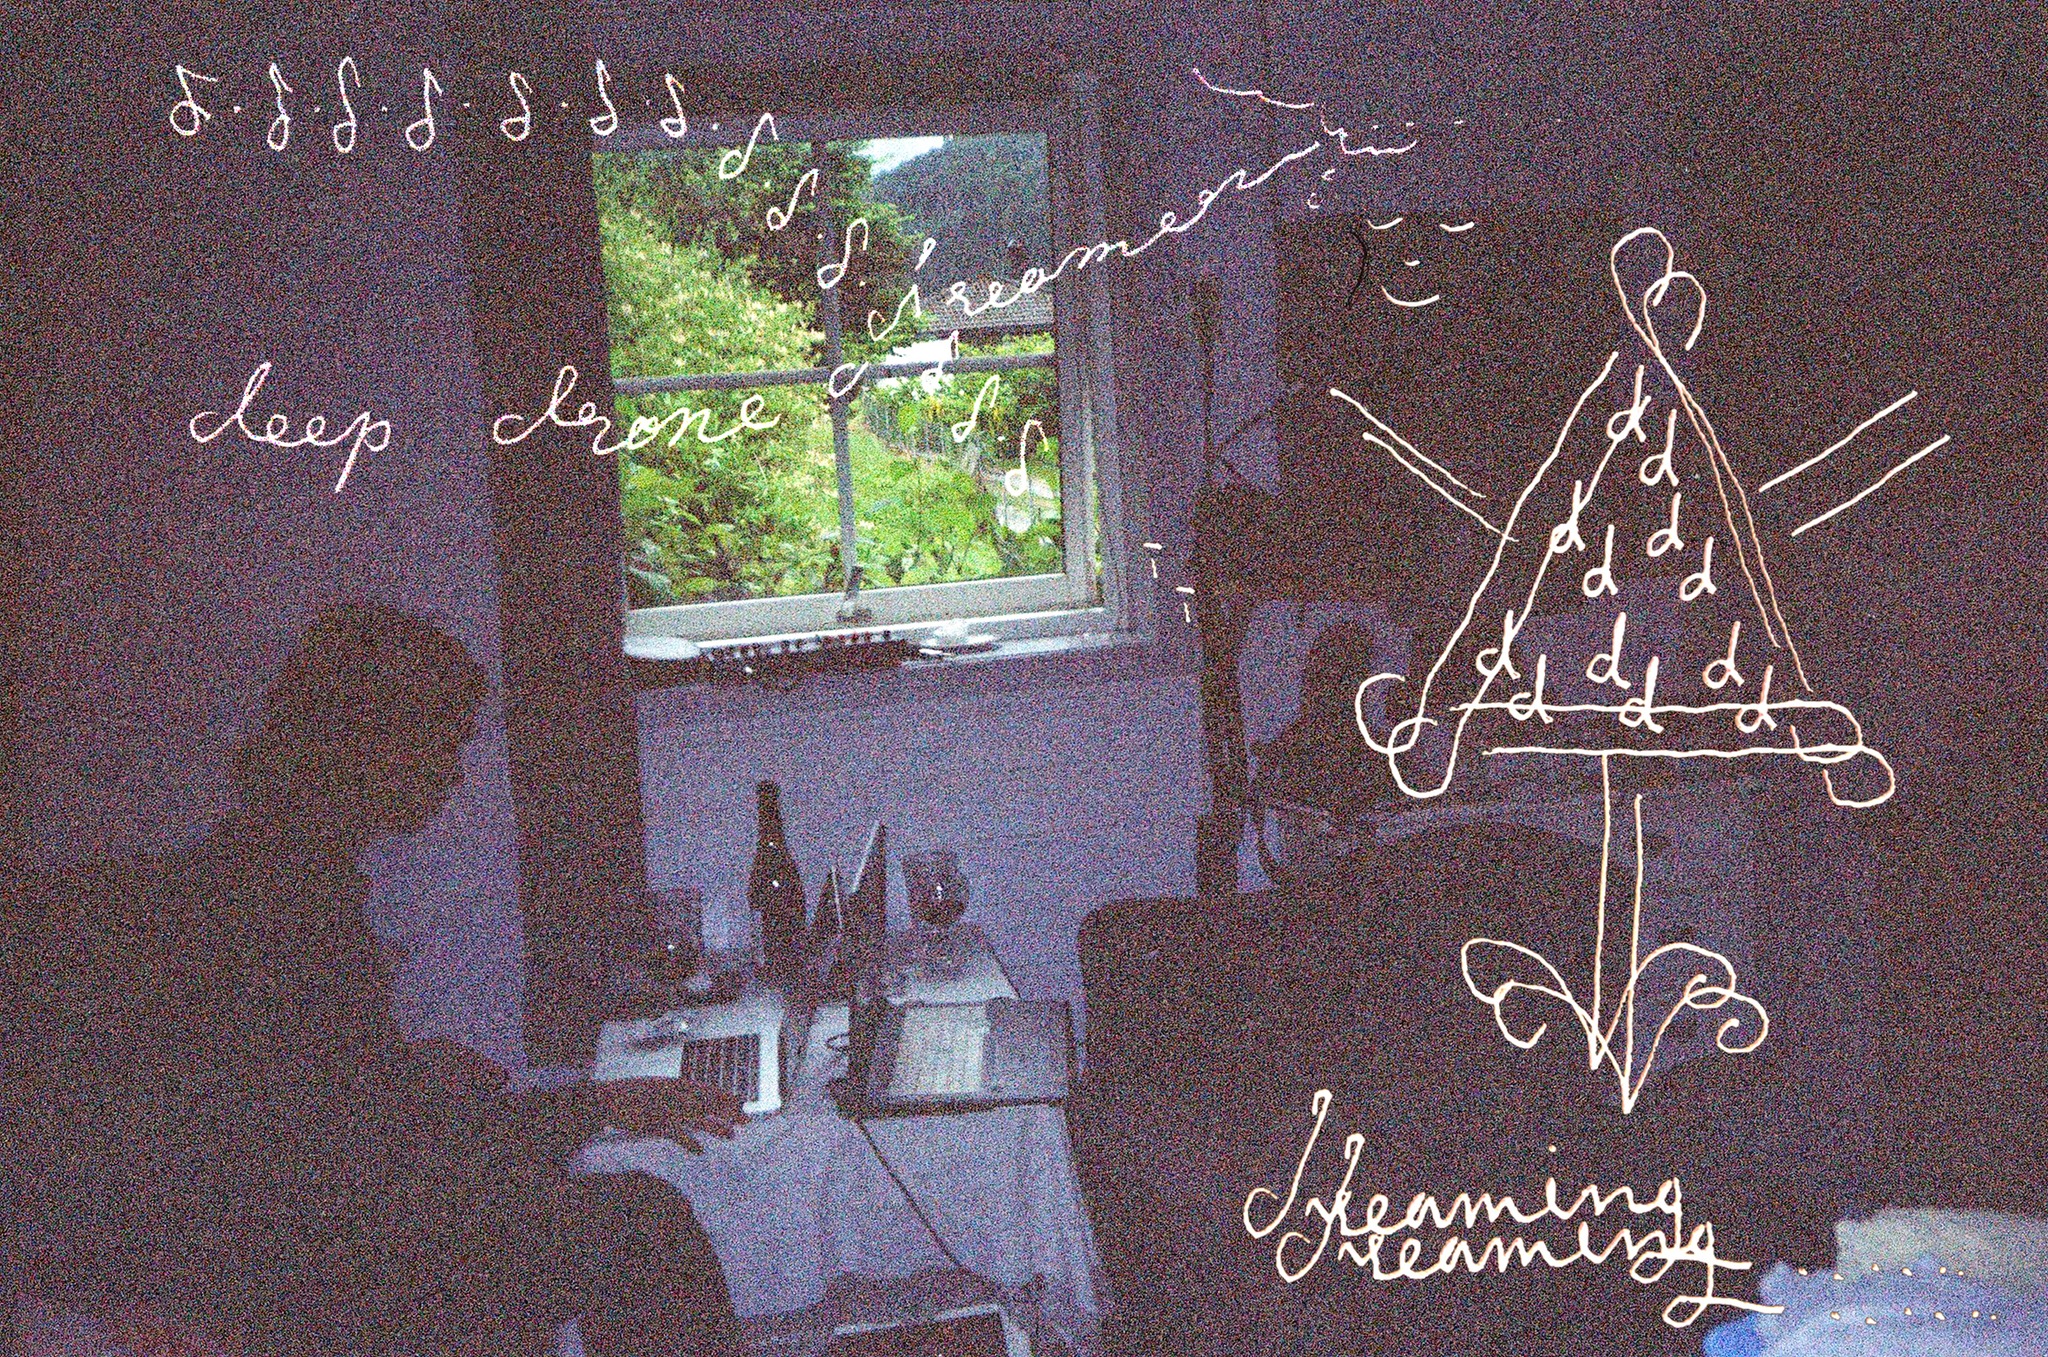 d.d.d.d.d.d.d.d.d.d.d.d.d
deep drone a dreamer
d
d
d d
d d
d d d
d d d
dreaming
dreaming